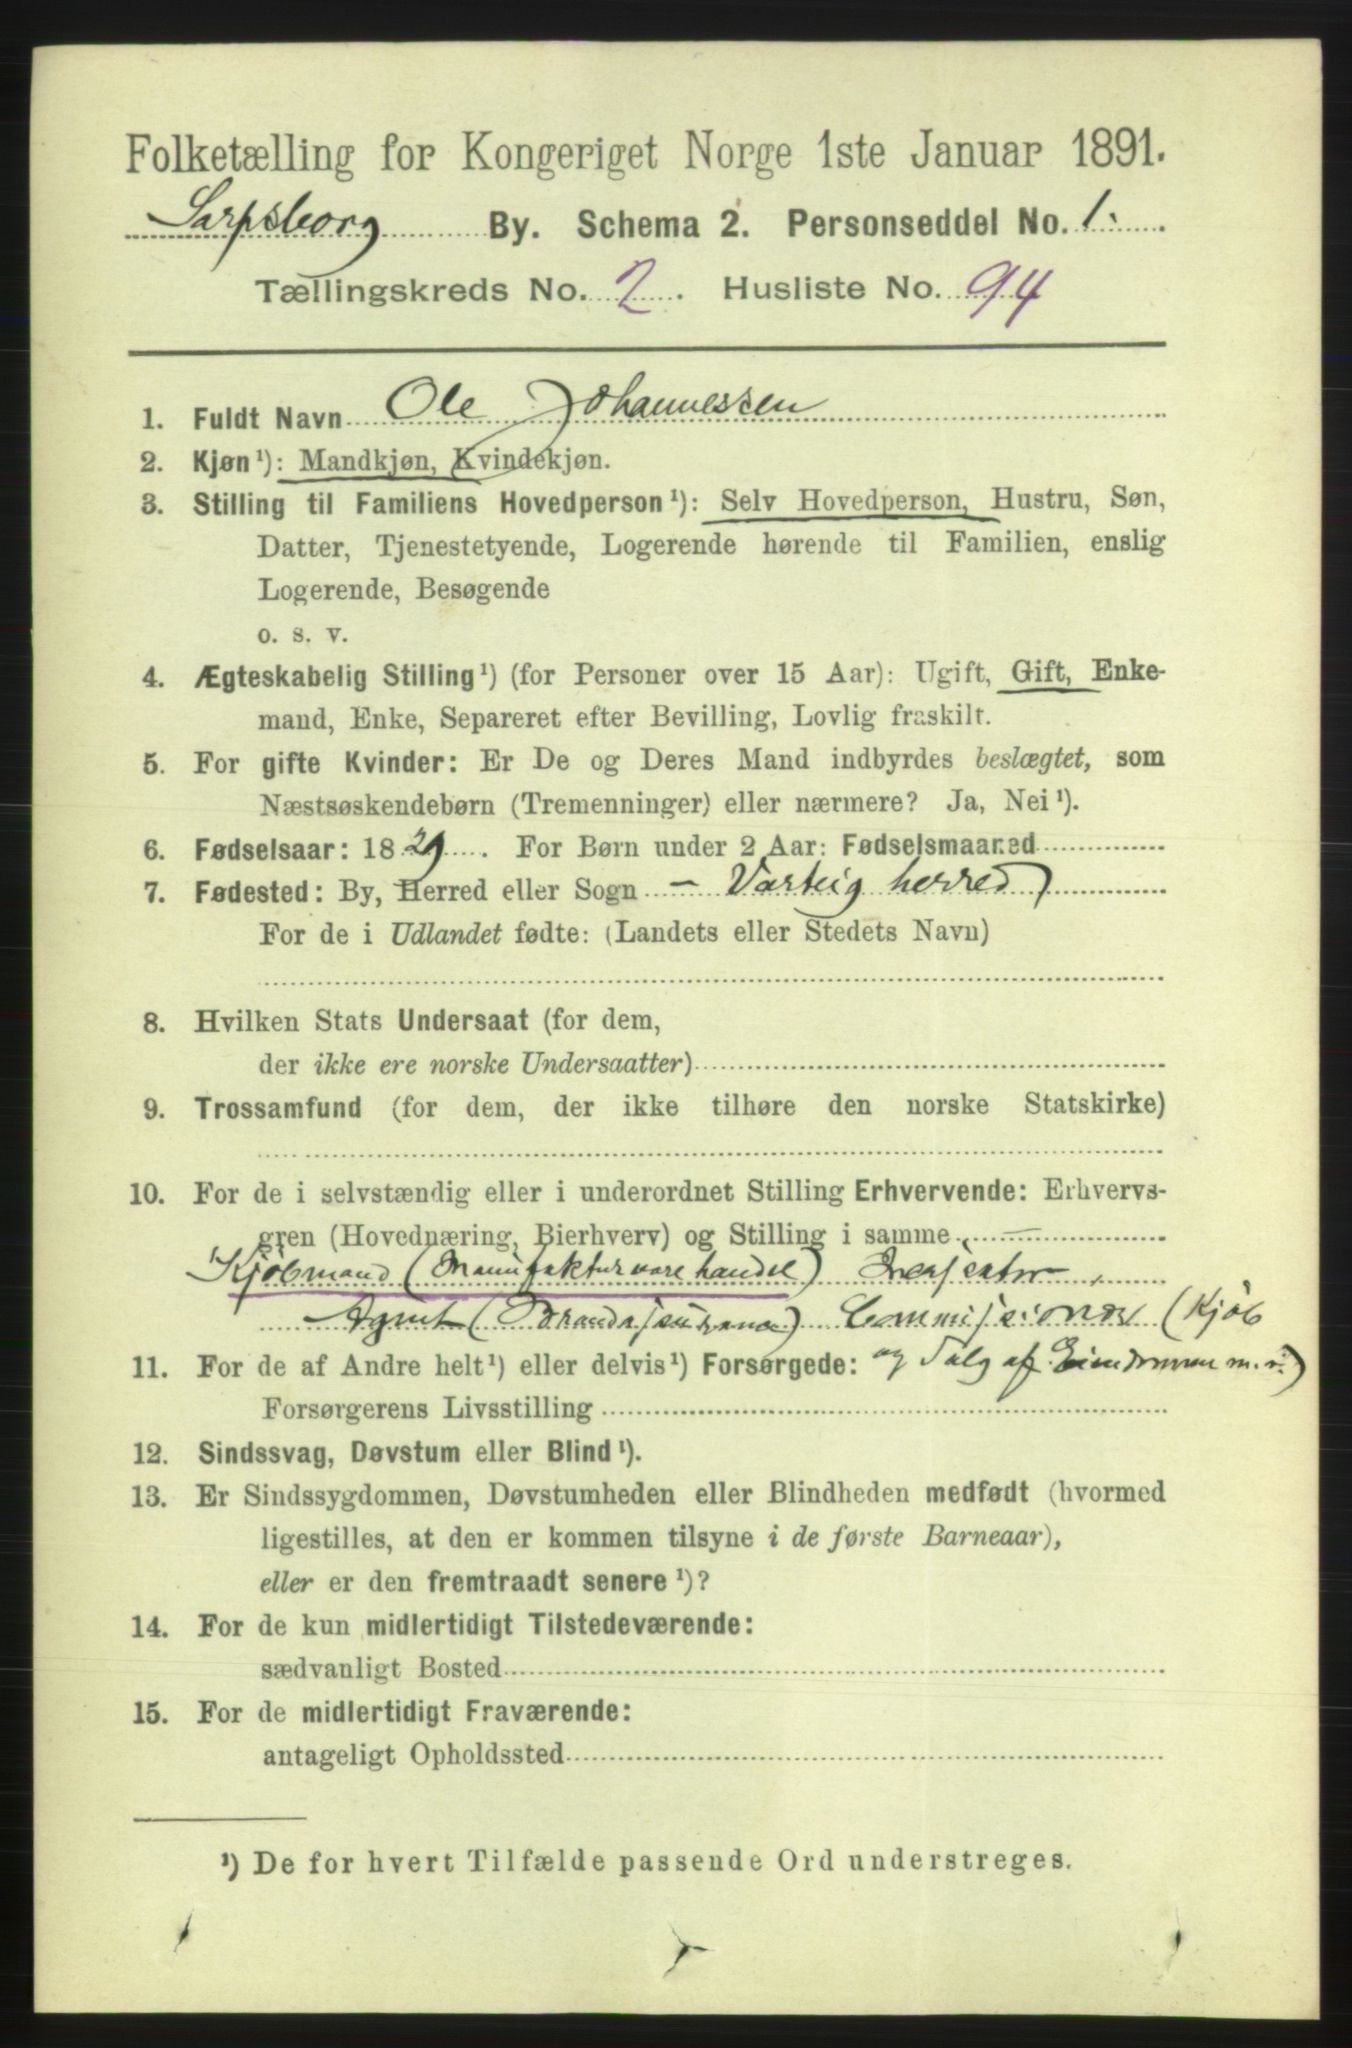 Folketælling for Kongeriget Norge 1ste Januar 1891.
Sarpsborg By. Schema 2. Personseddel No. 1.
Tællingskreds No. 2. Husliste No. 94
1. Fuldt Navn Ole Johannessen
2. Kjøn¹): Mandkjøn, Kvindekjøn.
3. Stilling til Familiens Hovedperson¹): Selv Hovedperson, Hustru, Søn,
Datter, Tjenestetyende, Logerende hørende til Familien, enslig
Logerende, Besøgende
o. s. v.
4. Ægteskabelig Stilling¹) (for Personer over 15 Aar): Ugift, Gift, Enke-
mand, Enke, Separeret efter Bevilling, Lovlig fraskilt.
5. For gifte Kvinder: Er De og Deres Mand indbyrdes beslægtet, som
Næstsøskendebørn (Tremenninger) eller nærmere? Ja, Nei¹).
6. Fødselsaar: 1829. For Børn under 2 Aar: Fødselsmaaned
7. Fødested: By, Herred eller Sogn – Varteig herred)
For de i Udlandet fødte: (Landets eller Stedets Navn)
8. Hvilken Stats Undersaat (for dem,
der ikke ere norske Undersaatter)
9. Trossamfund (for dem, der ikke tilhøre den norske Statskirke)
10. For de i selvstændig eller i underordnet Stilling Erhvervende: Erhvervs-
gren (Hovednæring, Bierhverv) og Stilling i samme
Kjøbmand (Manufakturvarehandel)
Agent (Brandassurance) Commissionær (Kjøb
11. For de af Andre helt¹) eller delvis¹) Forsørgede: og Salg af Eiendomme m. v.)
Forsørgerens Livsstilling
12. Sindssvag, Døvstum eller Blind¹).
13. Er Sindssygdommen, Døvstumheden eller Blindheden medfødt (hvormed
ligestilles, at den er kommen tilsyne i de første Barneaar),
eller er den fremtraadt senere¹)?
14. For de kun midlertidigt Tilstedeværende:
sædvanligt Bosted
15. For de midlertidigt Fraværende:
antageligt Opholdssted
¹) De for hvert Tilfælde passende Ord understreges.